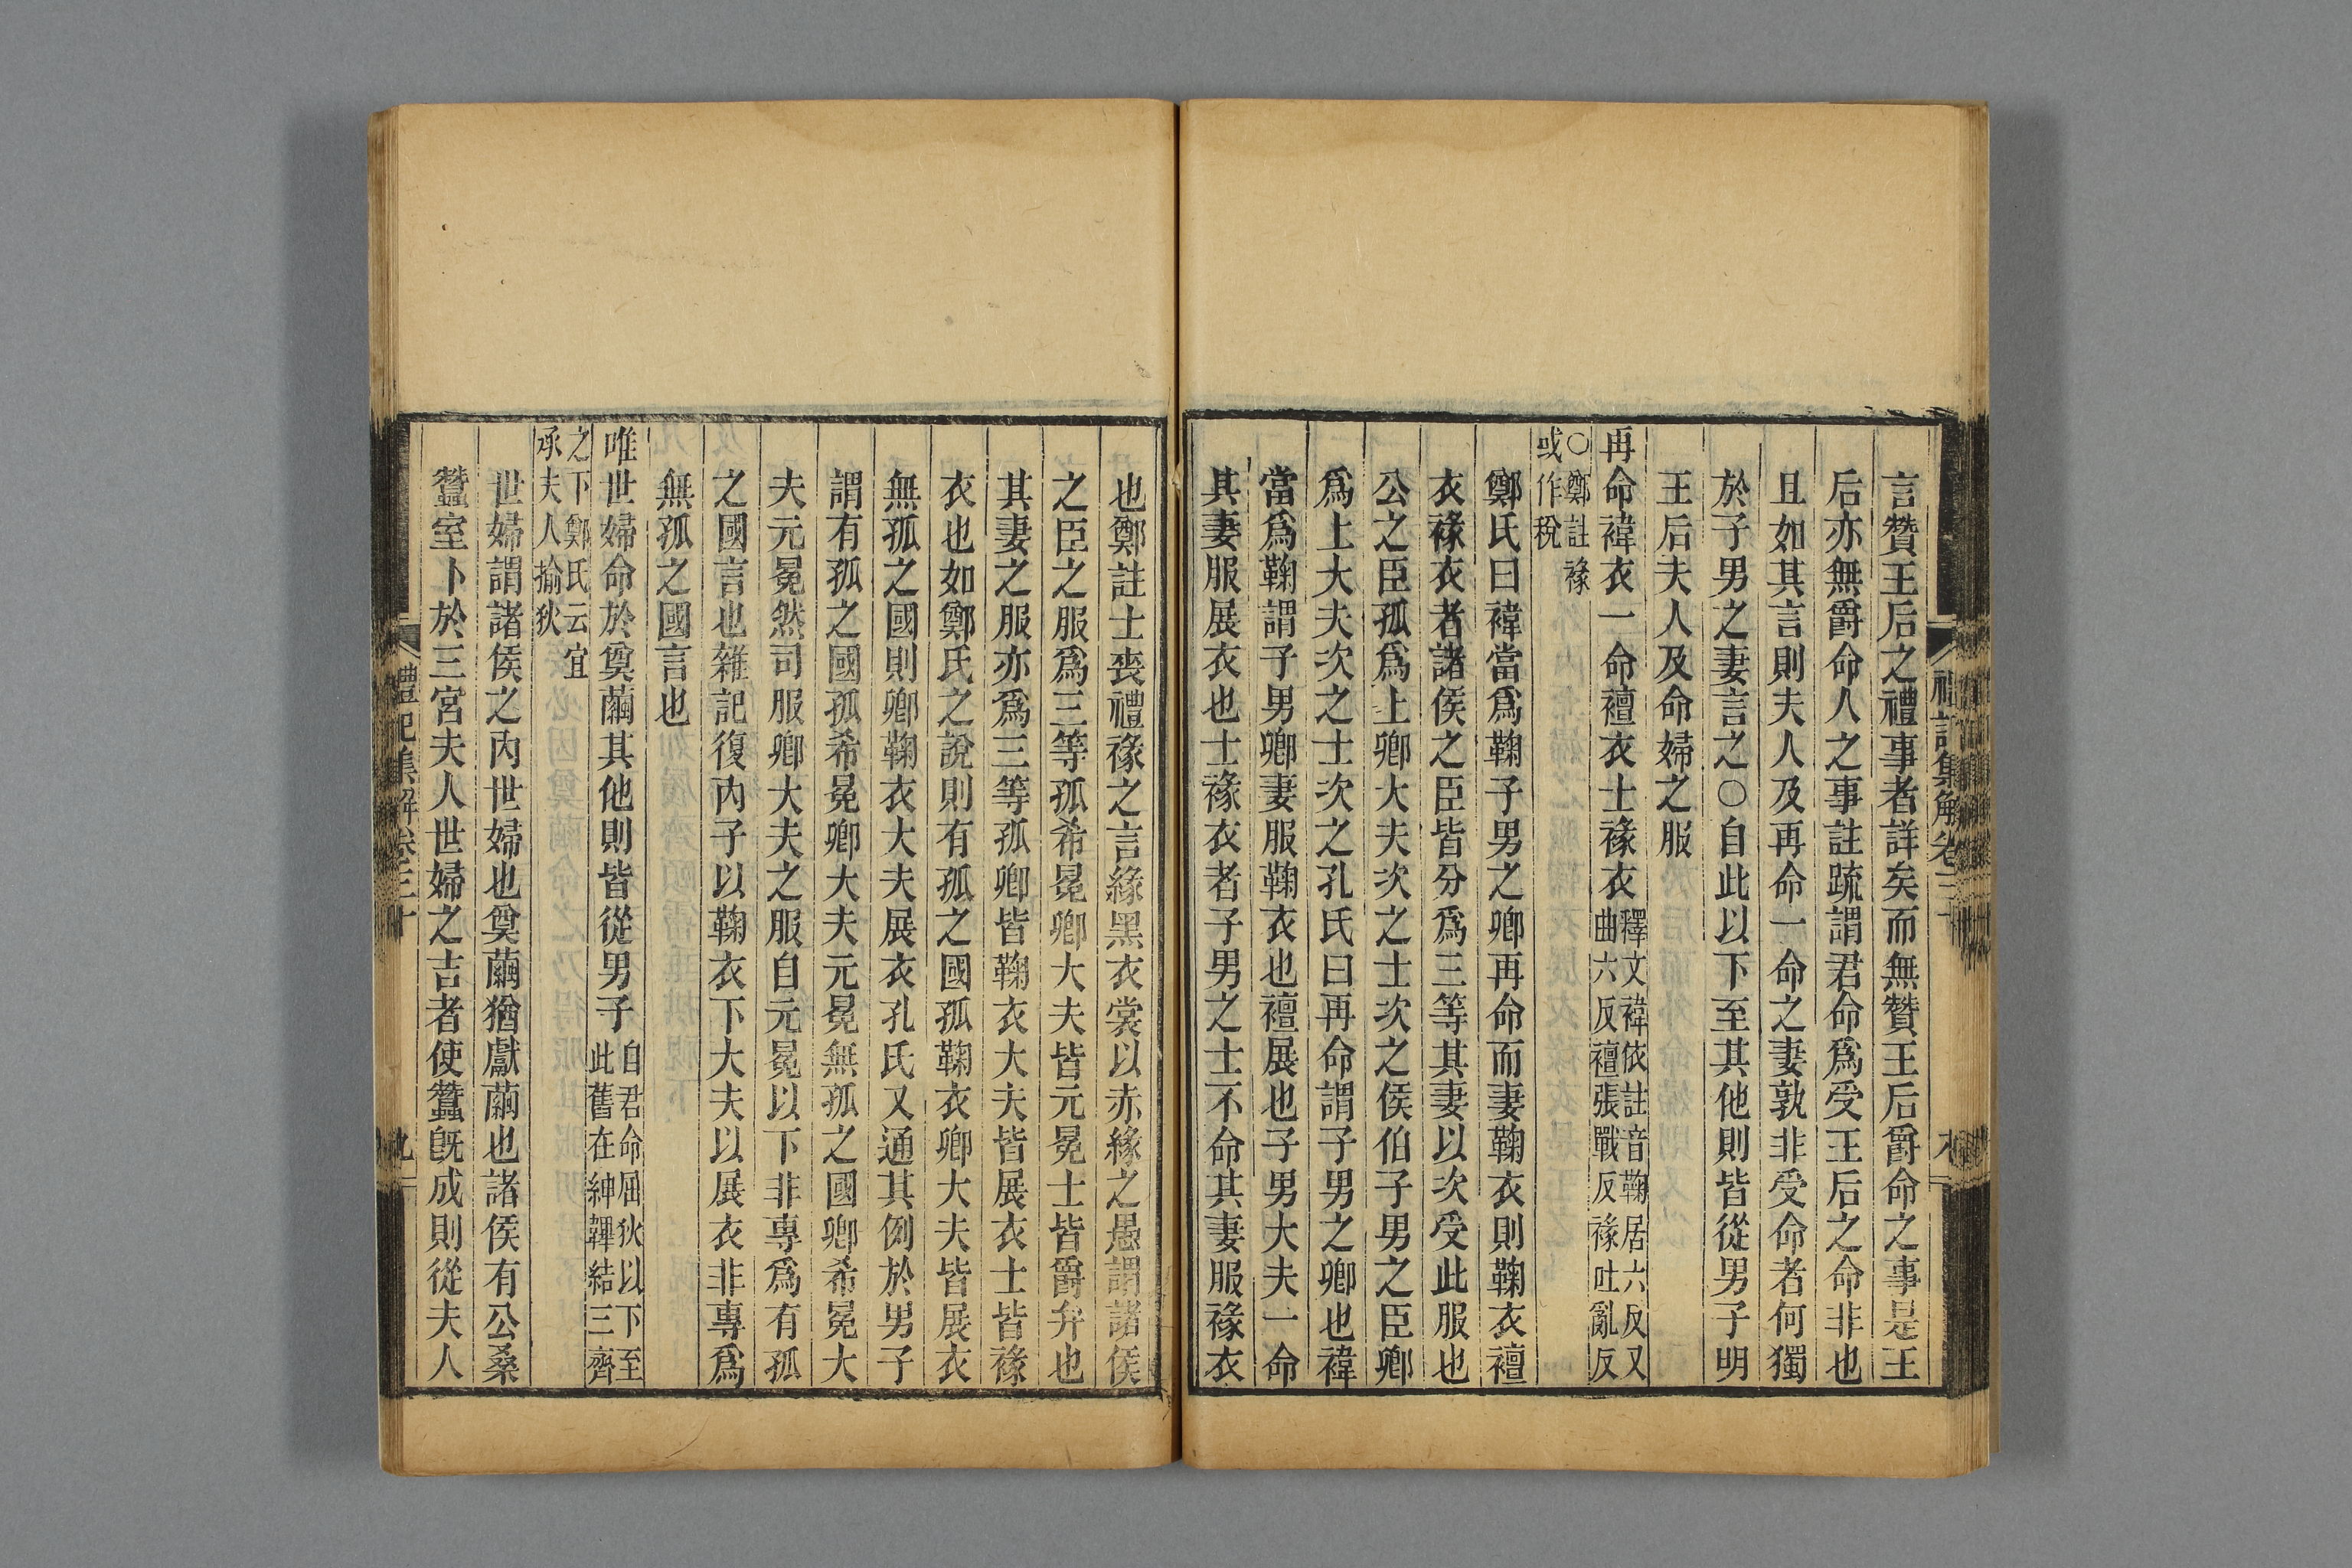 言贊王后之禮事者詳矣而無贊王后爵命之事是王
后亦無爵命人之事註疏謂君命爲受王后之命非也
且如其言則夫人及再命一命之妻孰非受命者何獨
於子男之妻言之○自此以下至其他則皆從男子明
王后夫人及命婦之服
再命褘衣一命襢衣士褖衣釋文褘依註音鞠居六反又
曲六反襢張戰反褖吐亂反
○鄭註褖
或作稅
鄭氏曰褘當爲鞠子男之卿再命而妻鞠衣則鞠衣襢
衣褖衣者諸侯之臣皆分爲三等其妻以次受此服也
公之臣孤爲上卿大夫次之士次之侯伯子男之臣卿
爲上大夫次之士次之孔氏曰再命謂子男之卿也褘
當爲鞠謂子男卿妻服鞠衣也襢展也子男大夫一命
其妻服展衣也士褖衣者子男之士不命其妻服褖衣
也鄭註士喪禮褖之言緣黑衣裳以赤緣之愚謂諸侯
之臣之服爲三等孤希冕卿大夫皆元冕士皆爵弁也
其妻之服亦爲三等孤卿皆鞠衣大夫皆展衣士皆褖
衣也如鄭氏之說則有孤之國孤鞠衣卿大夫皆展衣
無孤之國則卿鞠衣大夫展衣孔氏又通其例於男子
謂有孤之國孤希冕卿大夫元冕無孤之國卿希冕大
夫元冕然司服卿大夫之服自元冕以下非專爲有孤
之國言也雜記復內子以鞠衣下大夫以展衣非專爲
無孤之國言也
唯世婦命於奠繭其他則皆從男子自君命屈狄以下至
此舊在紳韠結三齊
之下鄭氏云宜
承夫人揄狄
世婦謂諸侯之內世婦也奠繭猶獻繭也諸侯有公桑
蠶室卜於三宮夫人世婦之吉者使蠶旣成則從夫人
禮記集解卷三十
九